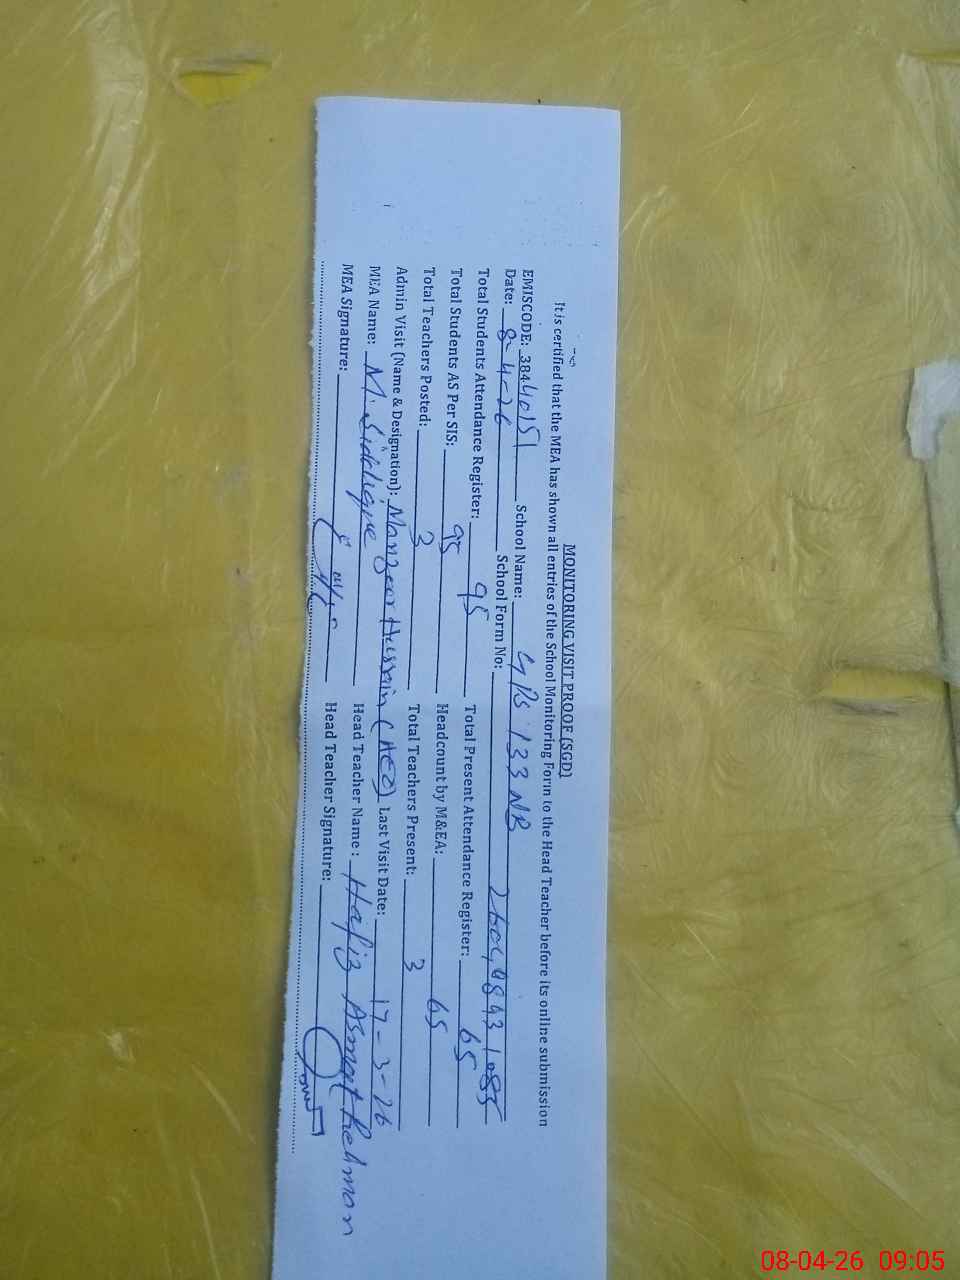 MONITORING VISIT PROOF (SGD)
It is certified that the MEA has shown all entries of the School Monitoring Form to the Head Teacher before its online submission
EMISCODE: 38440151 School Name: GPS 133 NB
Date: 8-4-26 School Form No:
Total Students Attendance Register: 95 Total Present Attendance Register: 65
Total Students AS Per SIS: 95 Headcount by M&EA: 65
Total Teachers Posted: 3 Total Teachers Present: 3
Admin Visit (Name & Designation): Manzoor Hussain (AEO) Last Visit Date: 17-3-26
MEA Name: M. Siddique Head Teacher Name: Hafiz Asmat Rehman
MEA Signature: Head Teacher Signature:
08-04-26 09:05